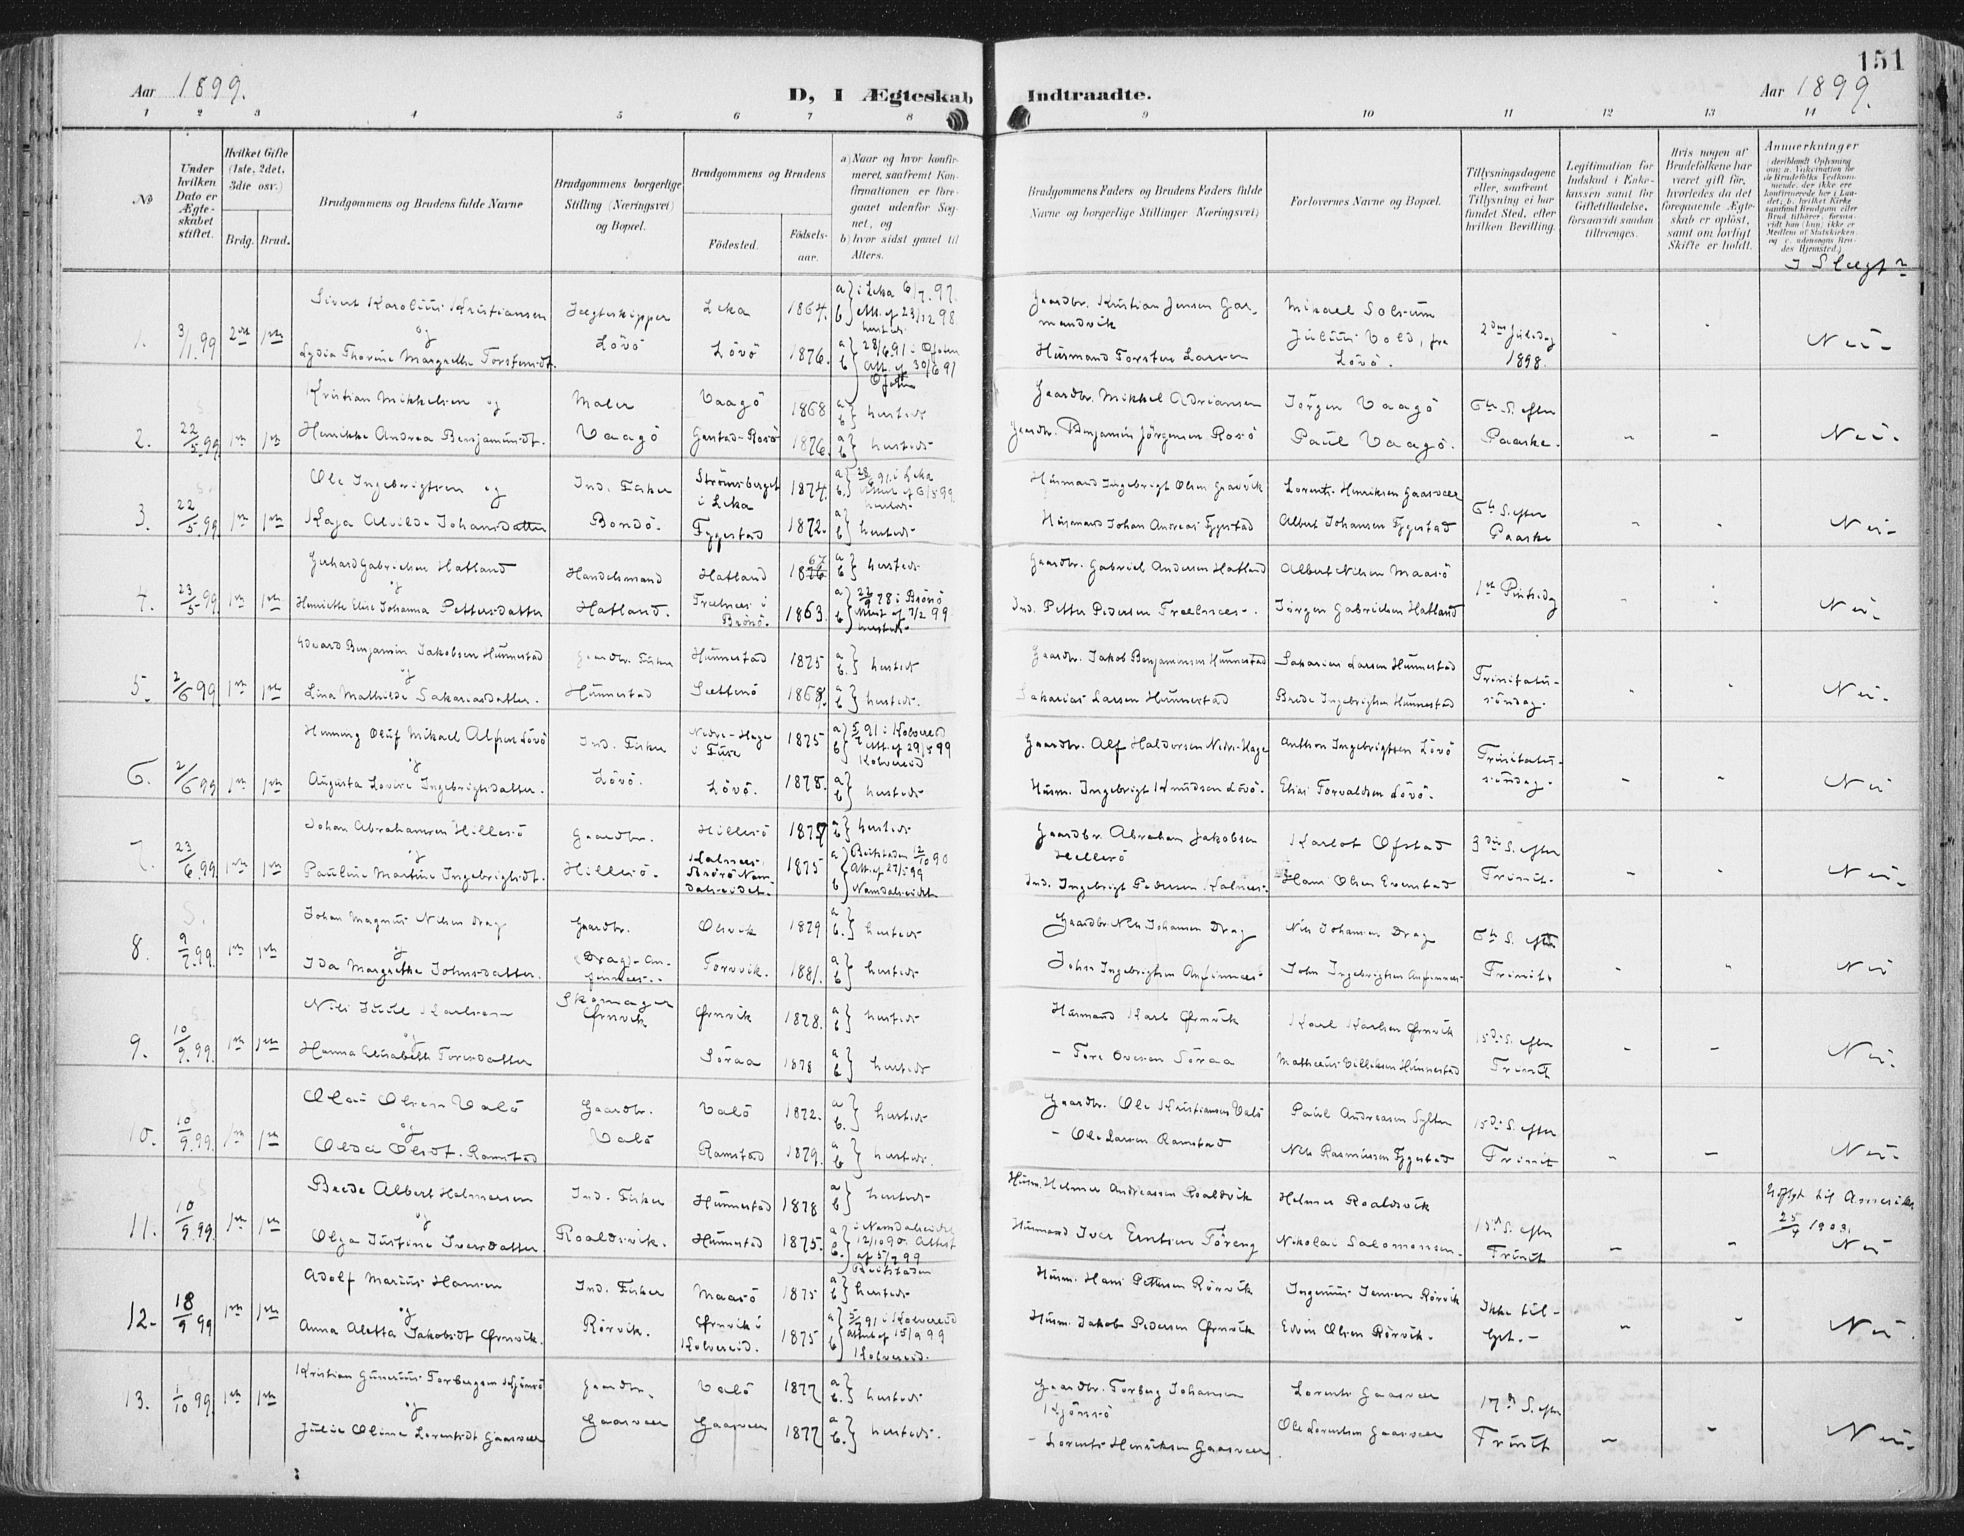 151
Aar 1899.
D, I Ægteskab Indtraadte.
Aar 1899.
1 2 3 4 5 6 7 8 9 10 11 12 13 14
No
Under hvilken Dato er Ægteskabet stiftet.
Hvilket Gifte (1ste, 2det, 3die osv.)
Brdg. Brud.
Brudgommens og Brudens fulde Navne
Brudgommens borgerlige Stilling (Næringsvei) og Bopæl.
Brudgommens og Brudens
Fødested.
Fødselsaar.
a) Naar og hvor konfirmeret, saafremt Konfirmationen er foregaaet udenfor Sognet, og
b) hvor sidst gaaet til Alters.
Brudgommens Faders og Brudens Faders fulde Navne og borgerlige Stillinger Næringsvei)
Forlovernes Navne og Bopæl.
Tillysningsdagene eller, saafremt Tillysning ei har fundet Sted, efter hvilken Bevilling.
Legitimation for Indskud i Enkekassen samt for Giftetilladelse, forsaavidt saadan tiltrænges.
Hvis nogen af Brudefolkene har været gift før, hvorledes da det foregaaende Ægteskab er opløst, samt om lovligt Skifte er holdt.
Anmerkninger
I Slægt?
1. 3/1 99 2det 1ste
Sivert Karolius Kristiansen
og
Lydia Thorine Margrethe Torstensdt.
Jægteskipper
Lövö
Leka 1864.
Lövö 1876.
Att. af 23/12 98
hersteds
28/6 91 i Ofoten
Att. af 30/6 97
Ofoten
Gaardbr. Kristian Jensen Garmandvik
Husmand Torsten Larsen
Mikael Solsum
Julius Vold, fra
Lövö.
2den Juledag
1898.
Nei
2. 22/5 99 1ste 1ste
Kristian Mikkelsen og
Henrikke Andrea Benjaminsdt.
Maler
Vaagö
Vaagö 1868
Gunstad-Rosö 1876.
a b hersteds
a b hersteds
Gaardbr. Mikkel Adriansen
Gaardbr. Benjamin Jörgensen Rosö
Jörgen Vaagö
Paul Vaagö.
6te S. efter
Paaske.
Nei
3. 22/5 99 1ste 1ste
Ole Ingebrigtsen og
Kaja Alvilde Johansdatter
Ind. Fisker
Bondö.
Strömsberget i Leka 1874.
Fyggestad 1872.
28/6 91 i Leka
hersteds
a b hersteds
Husmand Ingebrigt Olsen Gravvik
Husmand Johan Andreas Fyggestad
Lorents Henriksen Gaasvær
Albert Johansen Fyggestad
6te S. efter
Paaske
Nei
4. 23/5 99 1ste 1ste
Gerhard Gabrielsen Hatland
og
Henriette Elise Johanna Pettersdatter
Handelsmand
Hatland.
Hatland 67
Trælnæs i Brönö. 1863.
a b hersteds
i Brönö
Attest af 7/2 99
hersteds
Gaardbr. Gabriel Andersen Hatland
Ind. Petter Pedersen Trælnæs.
Albert Nilsen Maasö
Jörgen Gabrielsen Hatland
1ste Pintsedag
Nei
5. 2/6 99 1ste 1ste
Edvard Benjamin Jakobsen Hunnestad
og
Lina Mathilde Sakariasdatter.
Gaardbr. Fisker
Hunnestad
Hunnestad 1875
Sættenö 1868.
a b hersteds
a b hersteds.
Gaardbr. Jakob Benjaminsen Hunnestad
Sakarias Larsen Hunnestad
Sakarias Larsen Hunnestad
Brede Ingebrigtsen Hunnestad
Trinitatissöndag.
Nei
6. 2/6 99 1ste 1ste
Henning Oluf Mikael Alfsen Lövö
og
Augusta Lovise Ingebrigtsdatter.
Ind. Fisker
Lövö.
Nedre-Hage 1875
Lövö. 1878.
91 i Kolvereid
Att. af 29/5 99
Kolvereid
a b hersteds
Gaardbr. Alf Haldorsen Nedre-Hage
Husm. Ingebrigt Knudsen Lövö.
Anthon Ingebrigtsen Lövö
Elias Torvaldsen Lövö.
Trinitatissöndag.
Nei
7. 23/6 99 1ste 1ste
Johan Abrahamsen Hillesö
og
Pauline Martine Ingebrigtsdt.
Gaardbr.
Hillesö.
Hillesö 1877
Kalnæs Namdalseidet. 1875
a b hersteds
Beitstaden 12/10 90
Att. af 27/5 99
Namdalseidet
Gaardbr. Abraham Jakobsen Hillesö
Ind. Ingebrigt Pedersen Kalnæs
Karlot Ofstad
Hans Olsen Evenstad
3die S. efter
Trinit.
Nei
8. 9/7 99. 1ste 1ste
Johan Magnus Nilsen Drag
og
Ida Margrethe Johnsdatter.
Gaardbr.
(Drag) Anfinnæs.
Olsvik 1879
Torvvik. 1881.
a b hersteds
a b hersteds
Gaardbr. Nils Johansen Drag
John Ingebrigtsen Anfinnæs
Nils Johansen Drag
John Ingebrigtsen Anfinnæs
6te S. efter
Trinit.
Nei
9. 10/9 99. 1ste 1ste
Nils Juul Karlsen
og
Hanna Elisabeth Toresdatter
Skomager
Ørnvik
Ørnvik 1878.
Söraa 1878
a b hersteds
a b hersteds
Husmand Karl Ørnvik
- Tore Ovesen Söraa
Karl Karlsen Ørnvik
Mathæus Villiksen Hunnestad
15de S. efter
Trinit
Nei
10. 10/9 99. 1ste 1ste
Olai Olsen Valö
og
Olsdt. Ramstad
Gaardbr.
Valö
Valö 1872.
Ramstad 1879.
a b hersteds
a b hersteds.
Gaardbr. Ole Kristiansen Valö
- Ole Larsen Ramstad
Paul Andreasen Sylten
Nils Rasmussen Fyggestad
15de S. efter
Trinit
Nei
11. 10/9 99. 1ste 1ste
Brede Albert Helmersen
og
Olga Justine Iversdatter
Ind. Fisker
Roaldsvik.
Hunnestad 1878
Hunnestad 1875.
a b hersteds
i Namdalseidet
12/10 90. Attest
af 5/7 99
Beitstaden
Husm. Helmer Andreassen Roaldvik
Husmand Iver Erntsen Föreng
Helmer Roaldsvik
Nikolai Salomonsen
15de S. efter
Trinit
til Amerika
1903.
Nei
12. 18/9 99 1ste 1ste
Adolf Marius Hansen
og
Anna Aletta Jakobsdt Ørnvik.
Ind. Fisker
Rörvik.
Maasö 1875
Ørnvik i Kolvereid. 1875
a b hersteds
91 i Kolvereid
Attest af 15/9 99
Kolvereid.
Husm. Hans Pettersen Rörvik
Husm. Jakob Pedersen Ørnvik
Ingenius Jensen Rörvik
Edvin Olsen Rörvik.
Ikke tillyst.
Nei
13. 1/10 99. 1ste 1ste
Kristian Gunerius Torbergsen Kjönsö
og
Julie Oline Lorentsdt Gaasvær
Gaardbr.
Gaasvær
Valö 1877
Gaasvær 1877
a b hersteds
a b hersteds.
Gaardbr. Torberg Johansen
Kjönsö
- Lorents Henriksen Gaasvær
Lorents Gaasvær
Ole Lorentsen Gaasvær
17de S. efter
Trinit
Nei